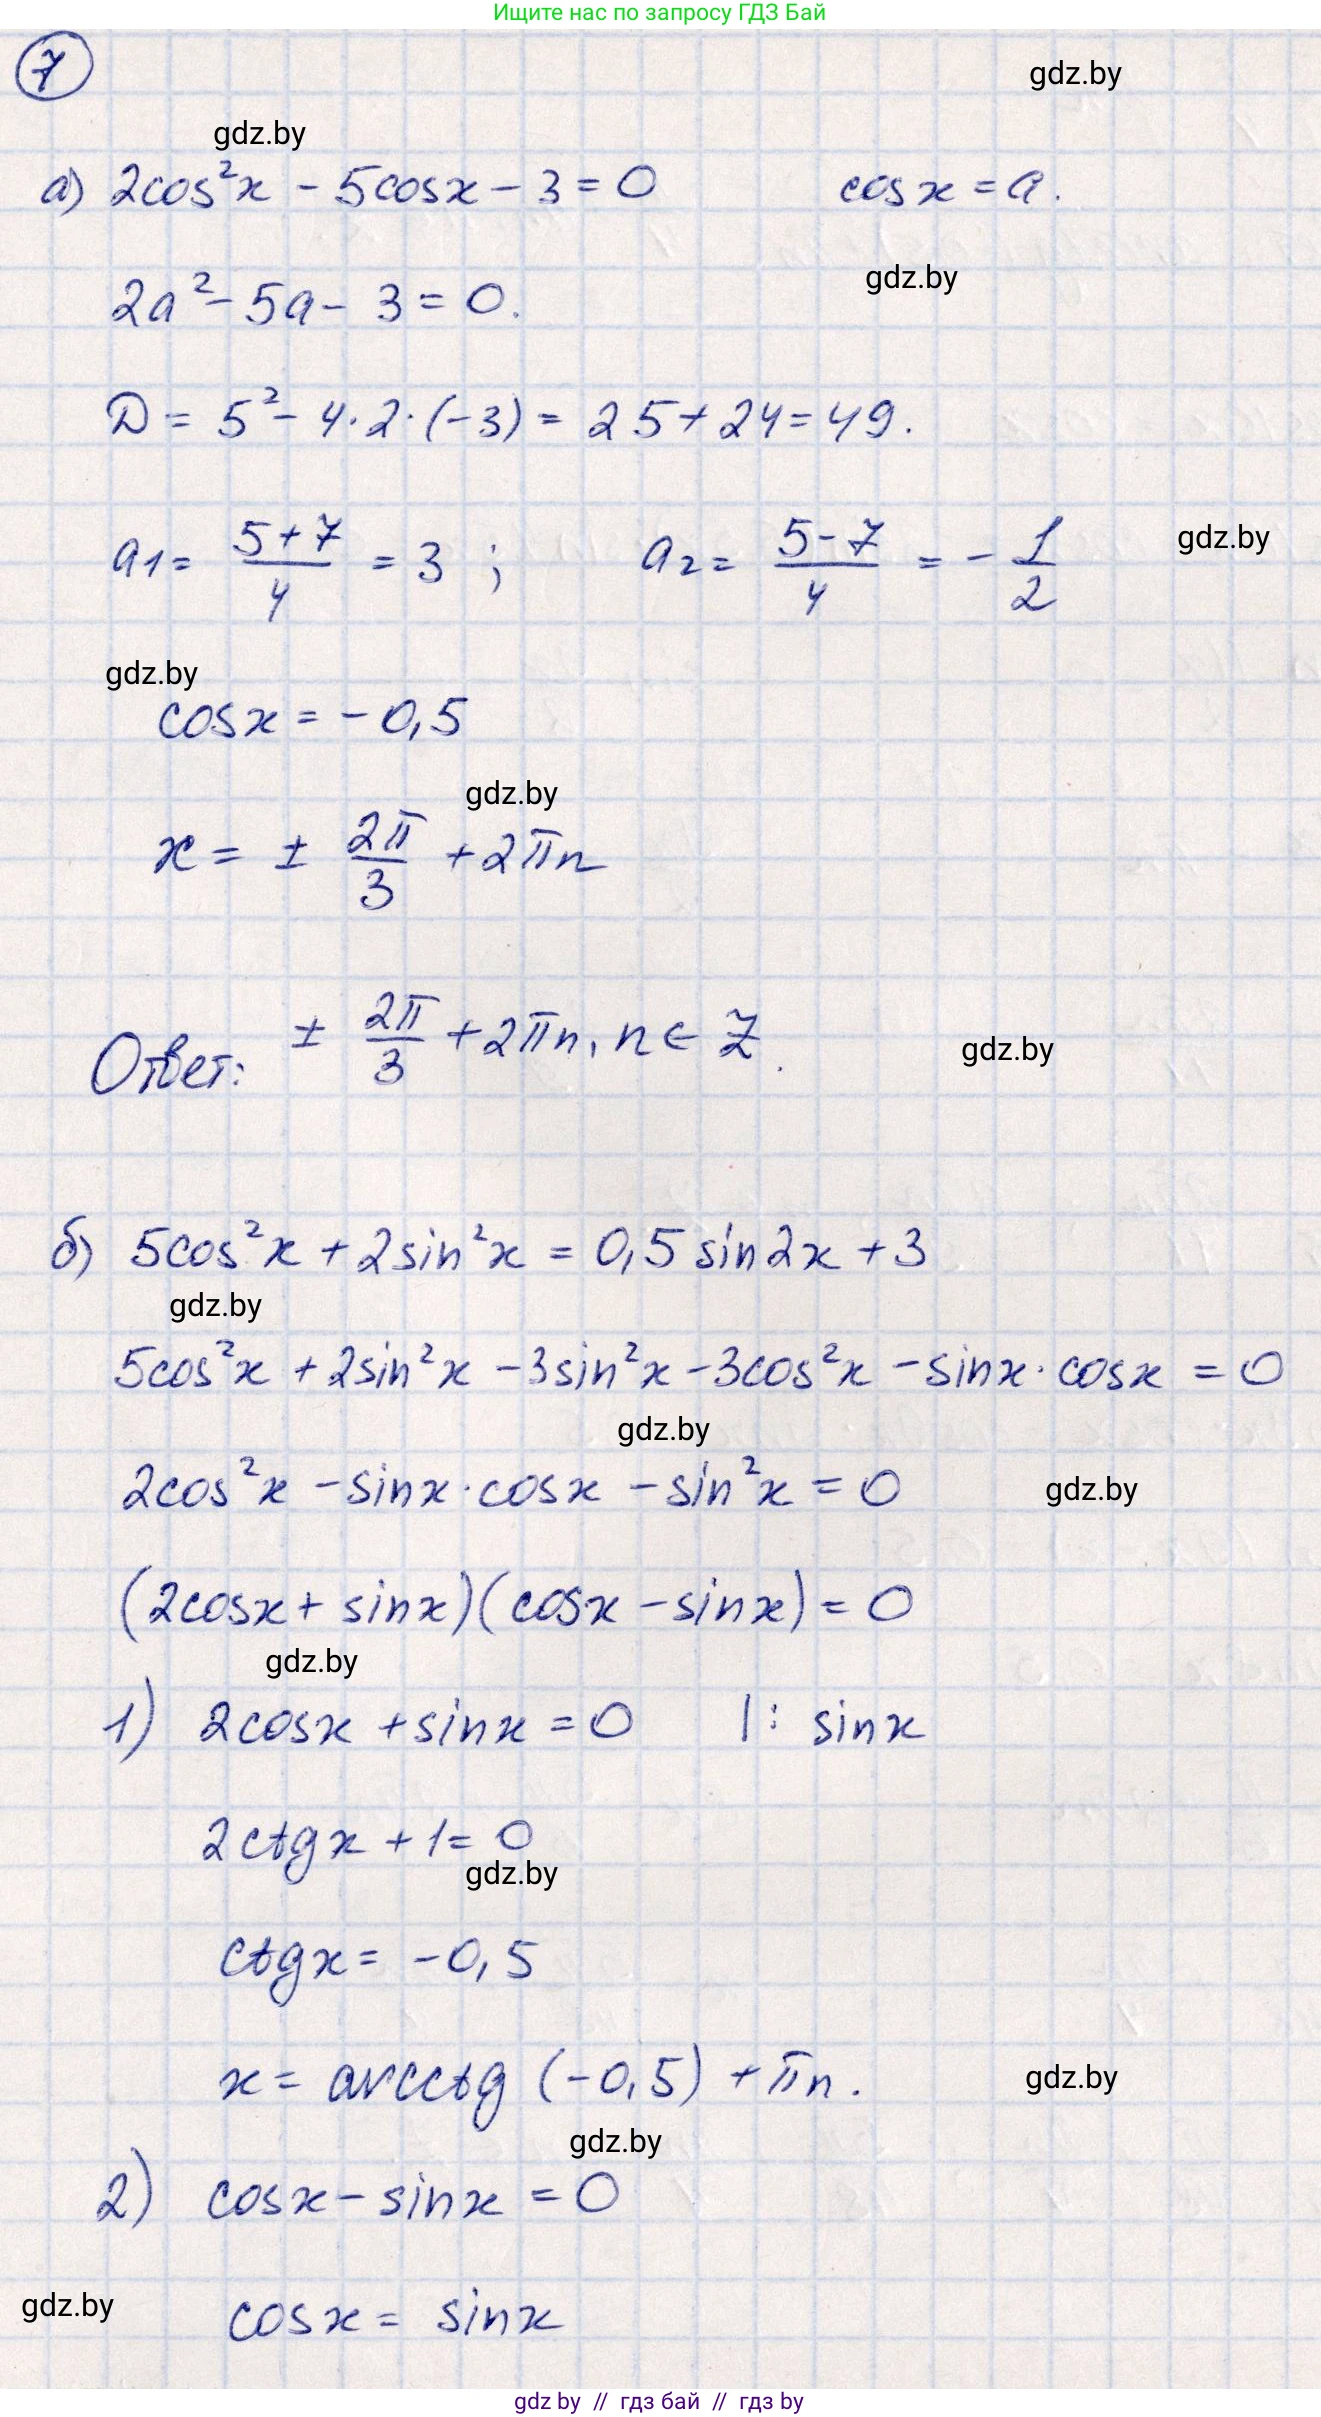 Ищите нас по запросу ГДЗ Бай
7
gdz.by
gdz.by
а) 2cos²x - 5cosx - 3 = 0   cosx = a.
gdz.by
2a² - 5a - 3 = 0.
D = 5² - 4·2·(-3) = 25 + 24 = 49.
a₁ = (5+7)/4 = 3 ;   a₂ = (5-7)/4 = -1/2
gdz.by
gdz.by
cosx = -0,5
gdz.by
x = ± 2π/3 + 2πn
Ответ: ± 2π/3 + 2πn, n ∈ Z.
gdz.by
б) 5cos²x + 2sin²x = 0,5 sin2x + 3
gdz.by
5cos²x + 2sin²x - 3sin²x - 3cos²x - sinx·cosx = 0
gdz.by
2cos²x - sinx·cosx - sin²x = 0
gdz.by
(2cosx + sinx)(cosx - sinx) = 0
gdz.by
1) 2cosx + sinx = 0   |: sinx
2ctgx + 1 = 0
gdz.by
ctgx = -0,5
x = arcctg (-0,5) + πn.
gdz.by
gdz.by
2) cosx - sinx = 0
gdz.by
cosx = sinx
gdz by // гдз бай // гдз by